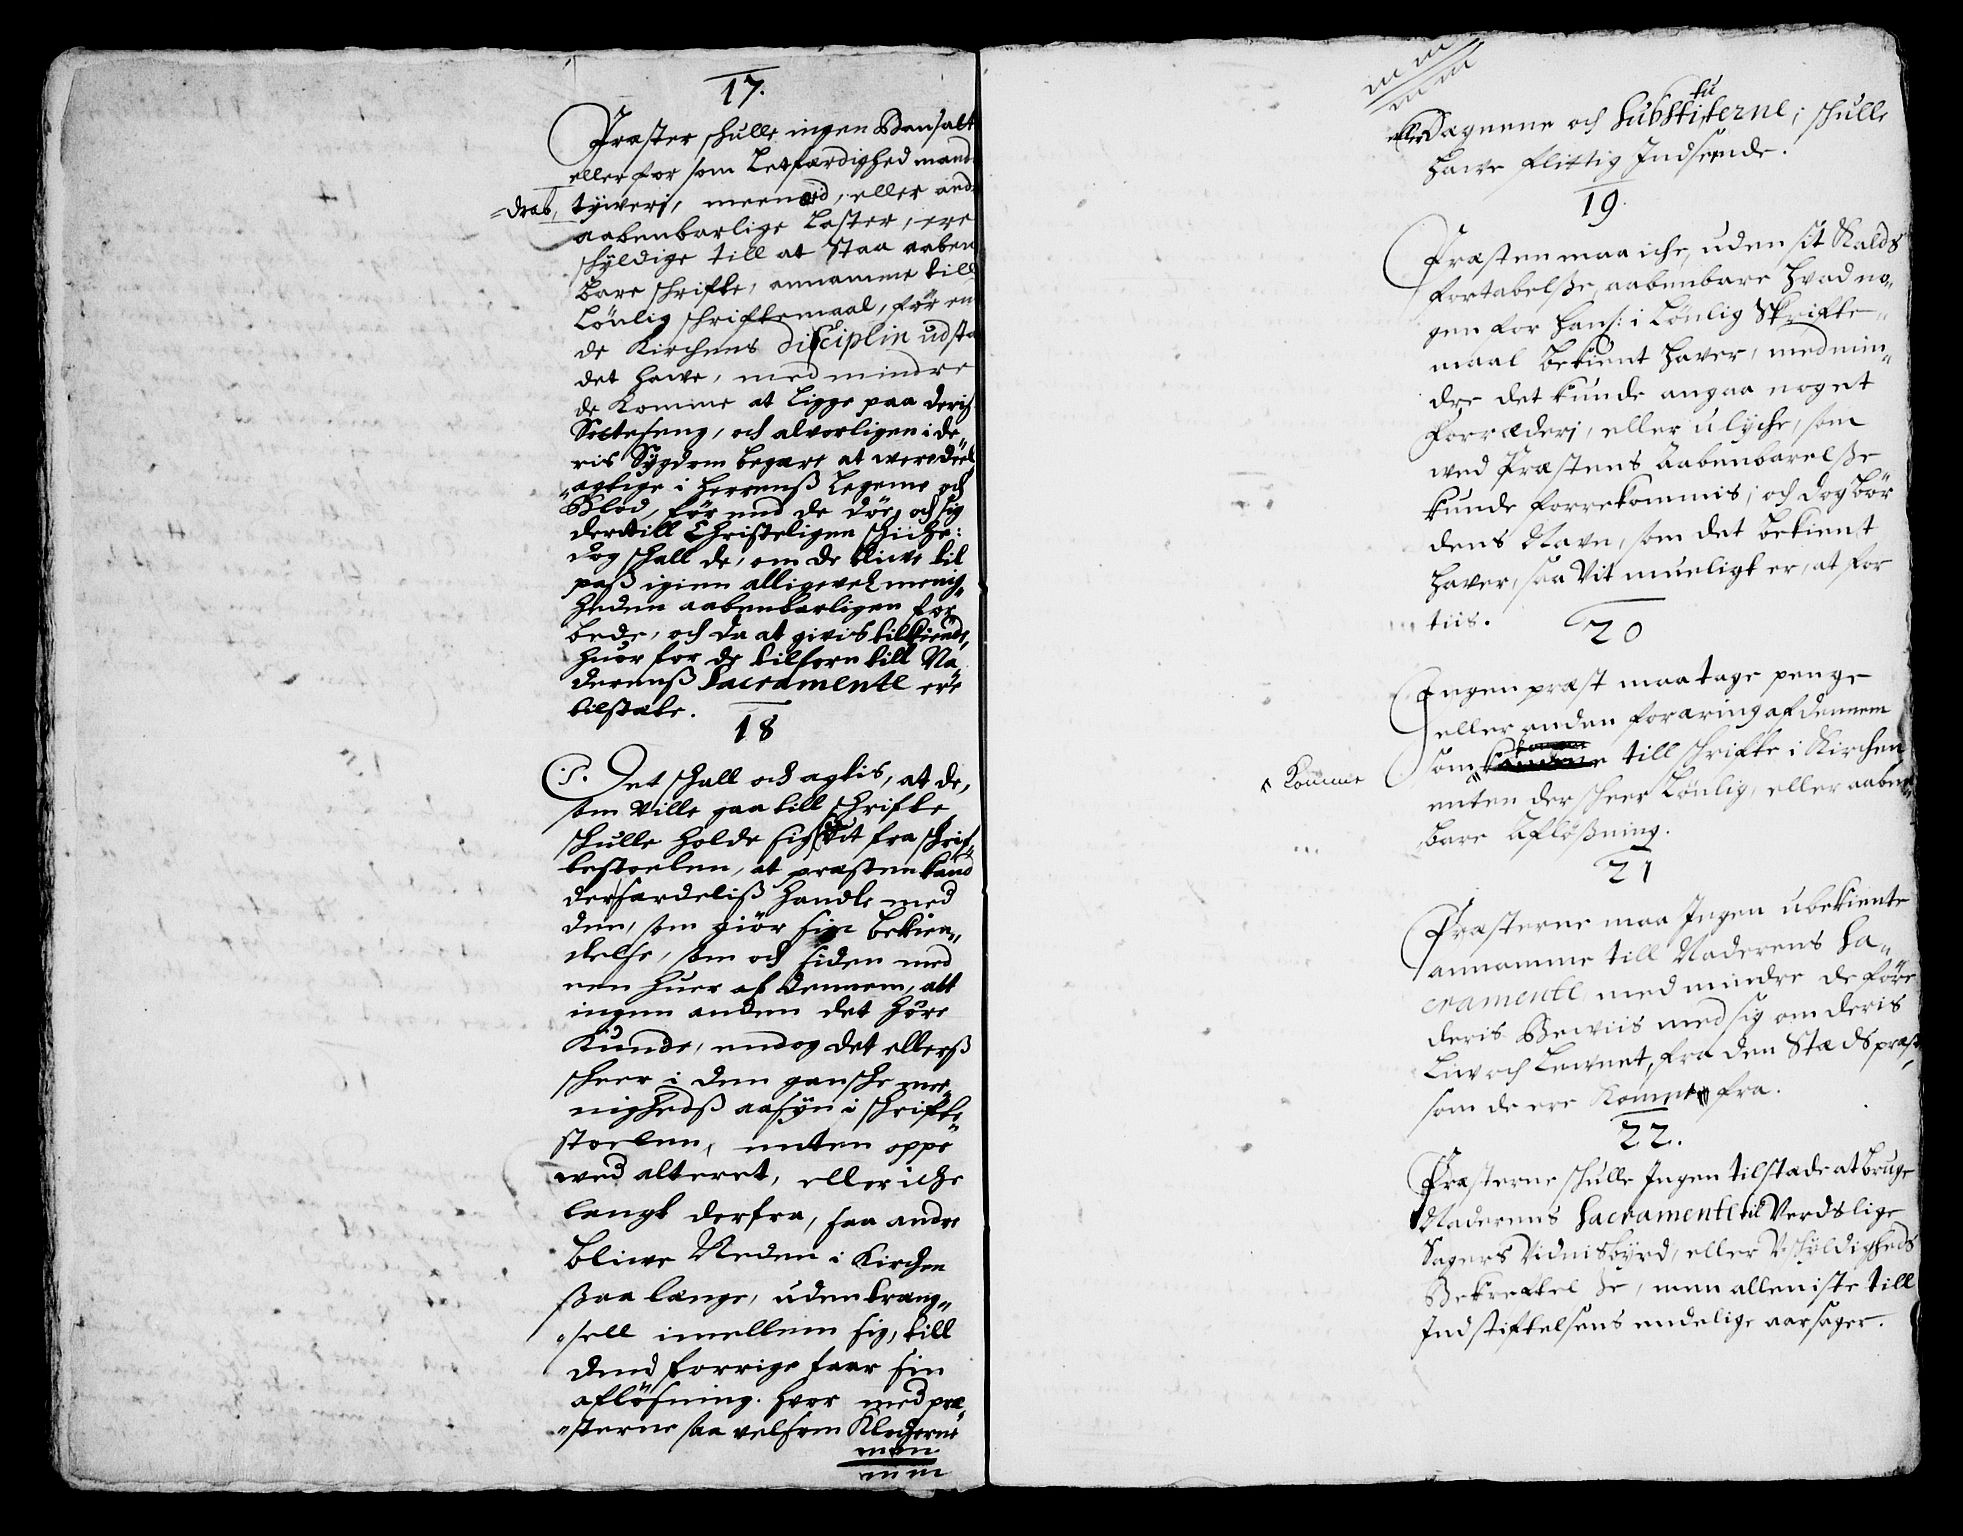 17.
Præster schulle ingen Bansatt
eller for som Letfærdighed mand
=drab, tyverj, meenæd, eller and
aabenbarlige Laster, ere
schyldige till at staa aaben
bare schrifte, annamme till
Lönlig schriftemaal, för en
de Kirchens disciplin udsta
det hawe, med mindre
de komme at ligge paa deris
Sotteseng, och alvorligen i de„
ris Sygdom begære at were deel
„agtige i Herrenß Legeme och
Blod, för end de döe, och sig
dertill Christeligen schiche:
dog schall de, om de blive til
paß igien alligevel menig„
heden aabenbarligen for„
bede, och da at givis tilkiende,
huor for de tilforn till Na„
derenß Sacramente ere
tilstæde.
18
Det schall och agtis, at de,
som ville gaa till schrifte
schulle holde sig vit fra schrif„
testoelen, at præsten kand
dersærdeliß handle med
den, som giör sin bekien„
delse, som och siden med
een huer af dennem, att
ingen anden det höre
kunde, endog det ellerß
scheer i den gansche mee„
nighedß aasyn i schrifte„
stoelen, enten oppe
ved alteret, eller iche
langt derfra, saa andre
blive Neden i Kirchen
ßaa lenge, uden trang„
„sell imellem sig, till
dend forrige faar sin
aflößning. hvor med præ„
„sterne saa velsom Klocherne
eller Dægnene och Substituterne, schulle
hawe flittig Indseende.
19.
Præsten maa iche, uden sit Kalds
fortabelße, aabenbare hvad no„
gen for hans: i Lönlig Skrifte„
maal bekient haver, med min„
dre det kunde angaa noget
forræderj, eller ulyche, som
wed Præstens Aabenbarelße
kunde forrekommis, och dog bör
dens Navn, som det bekient
haver, saa vit mueligt er, at for
tiis.
20
Ingen præst maa tage penge
eller anden foræring af dennem
som Komme till schrifte i Kirchen
enten der scheer Lönlig, eller aaben„
bare Aflößning.
21
Præsterne maa Ingen ubekiente
annamme till Naderens Sa„
cramente med mindre de före
deris Bewiis med sig om deris
Liw och Lewnet, fra den Stæds præst,
som de ere Komne fra.
22.
Præsterne schulle Ingen tilstæde at bruge
Naderens Sacramente til Verdslige
Sagers Vidnisbyrd, eller V-schyldigheds
Bekreftelße, men alleniste till
Indstiftelsens endelige aarsager.